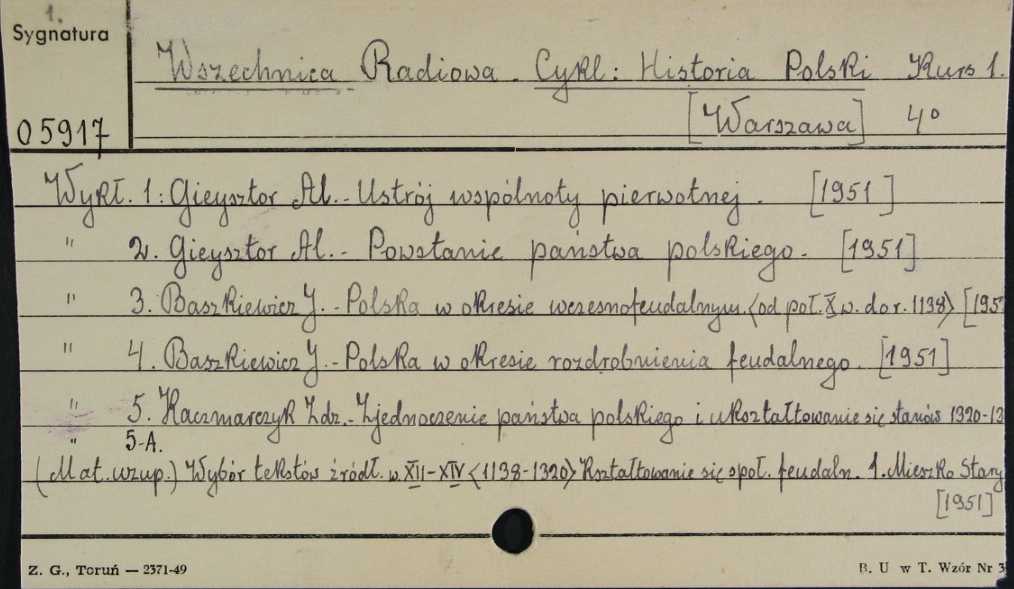 1.
Sygnatura
05917
Wszechnica Radiowa. Cykl: Historia Polski Kurs 1.
[Warszawa] 4°
Wykł. 1: Gieysztor Al. - Ustrój wspólnoty pierwotnej. [1951]
" 2. Gieysztor Al. - Powstanie państwa polskiego. [1951]
" 3. Baszkiewicz J. - Polska w okresie wczesnofeudalnym. <od poł. X w. do r. 1138> [195
" 4. Baszkiewicz J. - Polska w okresie rozdrobnienia feudalnego. [1951]
" 5. Kaczmarczyk Zdz. - Zjednoczenie państwa polskiego i ukształtowanie się stanów 1320-13
" 5-A.
(Mat. uzup.) Wybór tekstów źródł. w. XII-XIV <1138-1320> Kształtowanie się społ. feudaln. 1. Mieszko Stary
[1951]
Z. G., Toruń — 2371-49 B. U w T. Wzór Nr 3